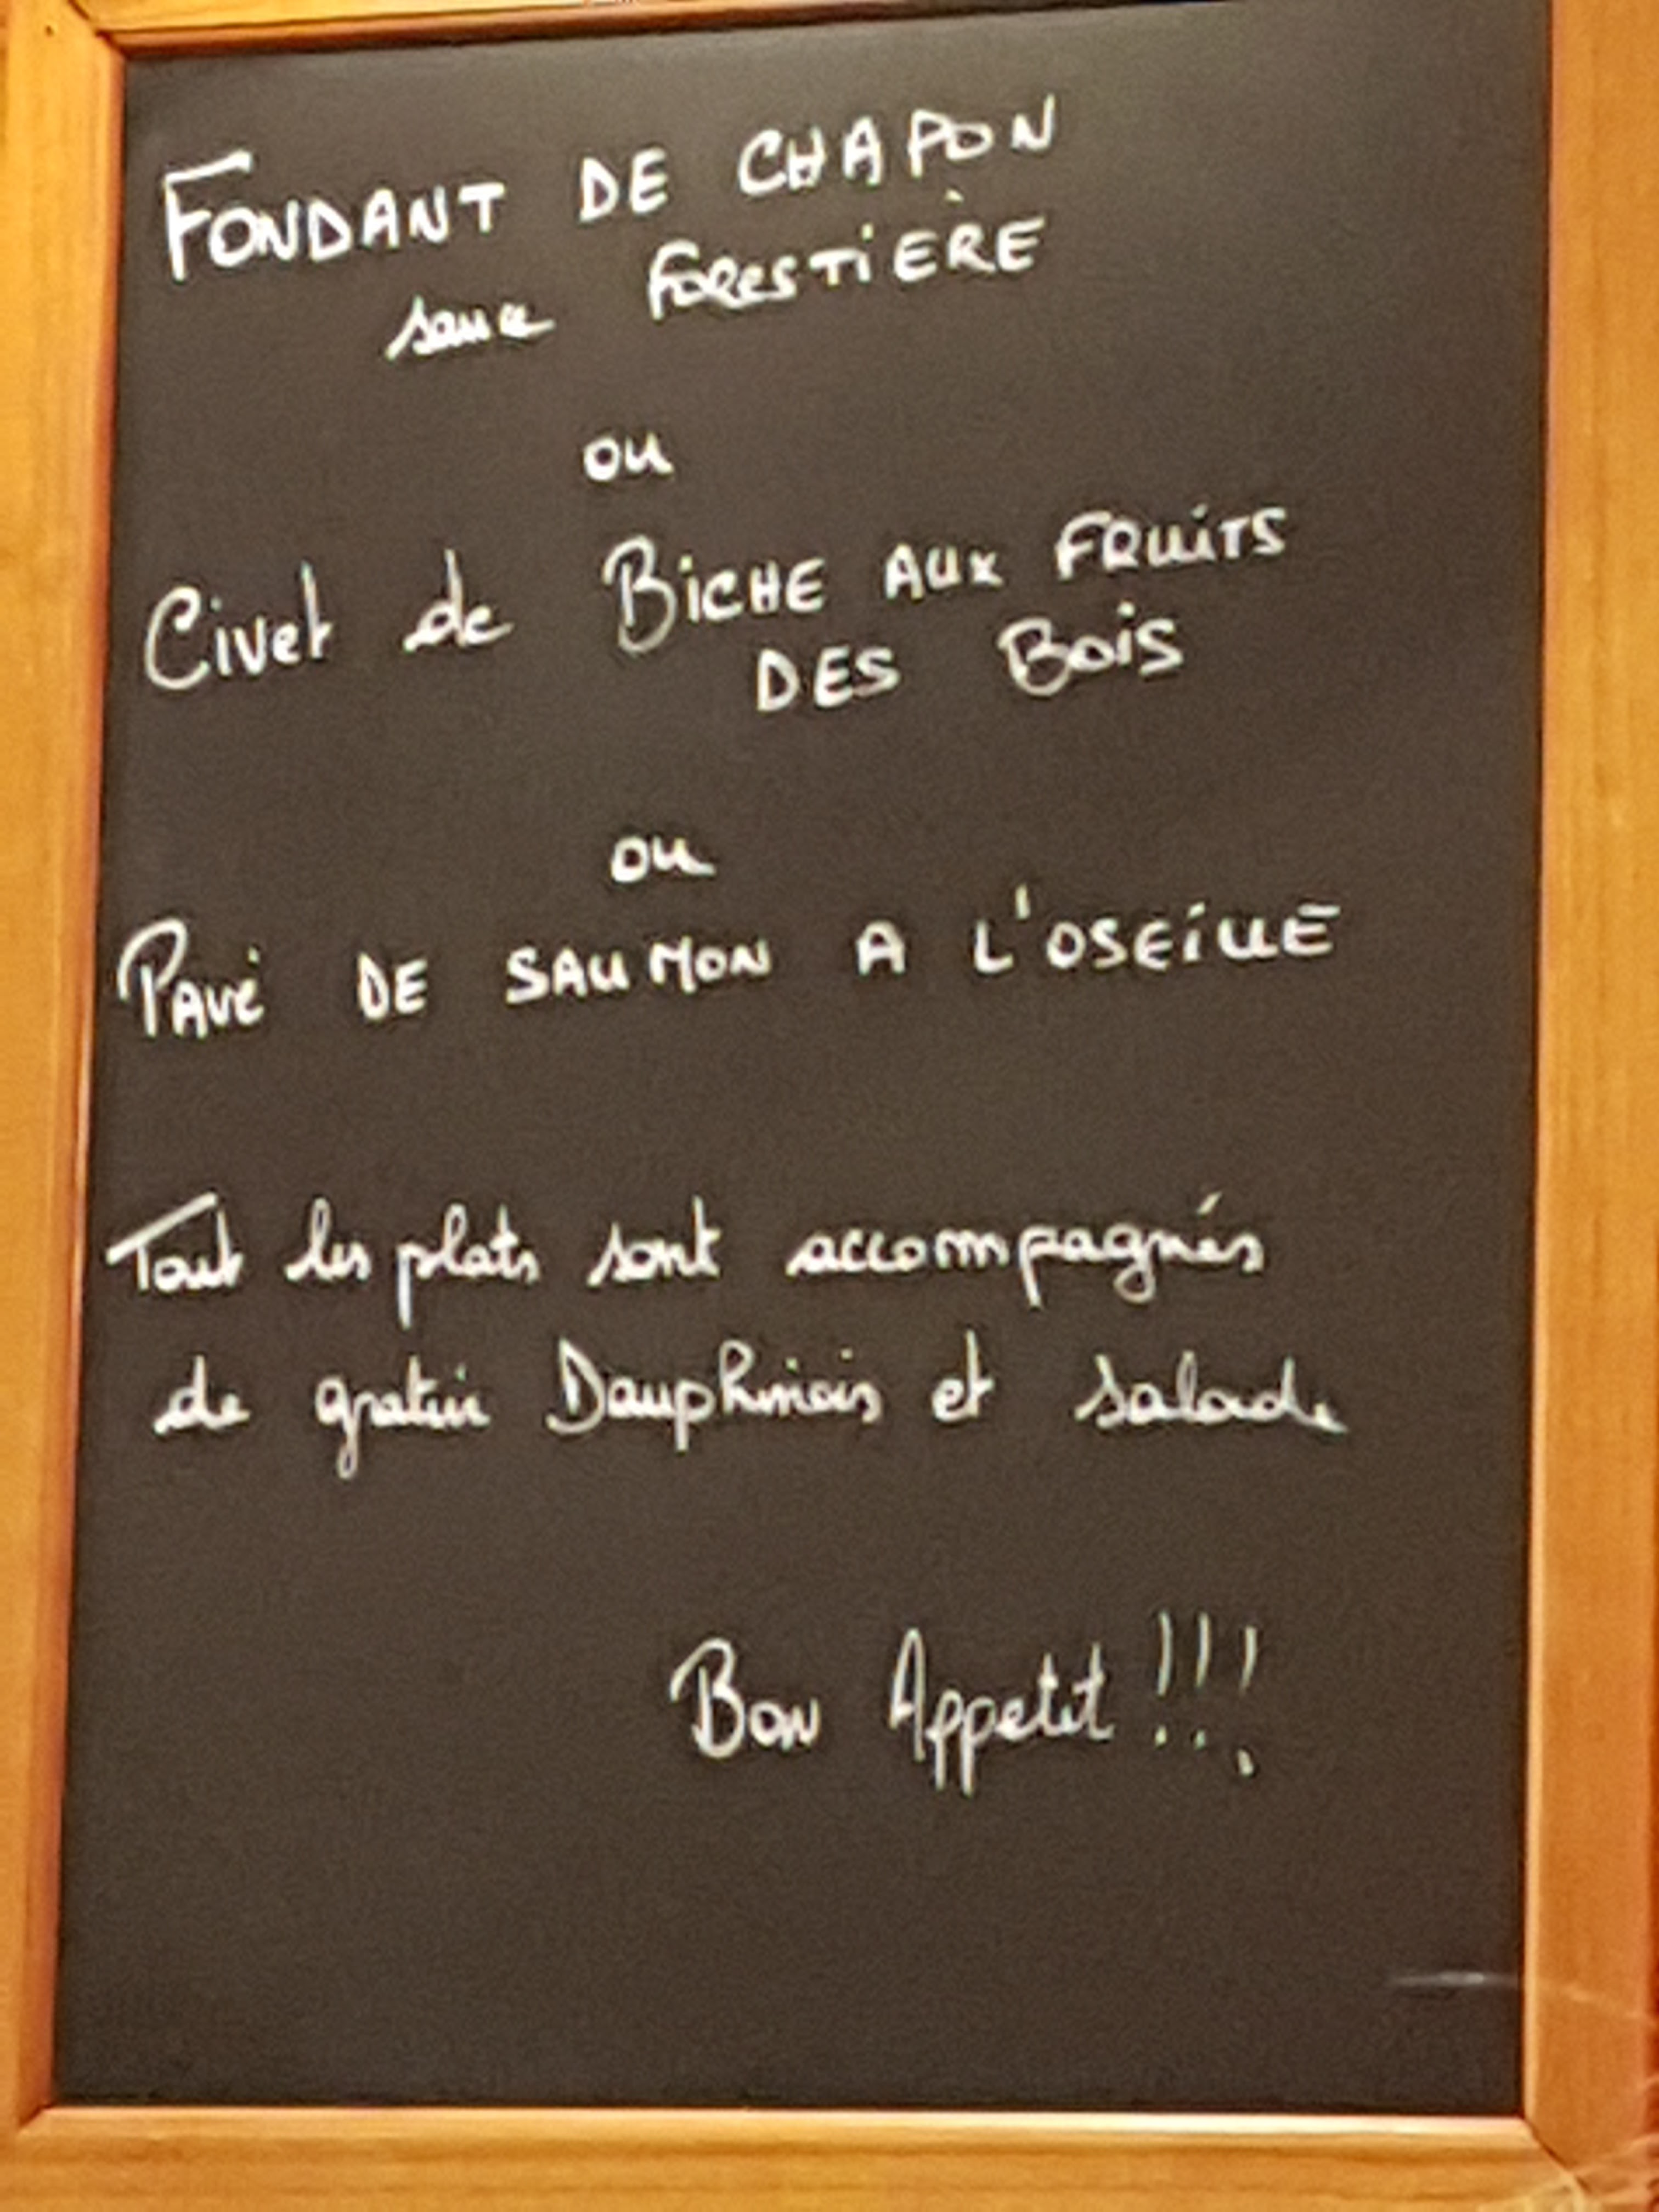 FONDANT DE CHAPON
sauce FORESTIÈRE
ou
Civet de BiCHE AUX FRUiTS
DES BOiS
ou
PAVé DE SAUMON A L'OSEiLLE
Tout les plats sont accompagnés
de gratin Dauphinois et salade
BON Appetit !!!